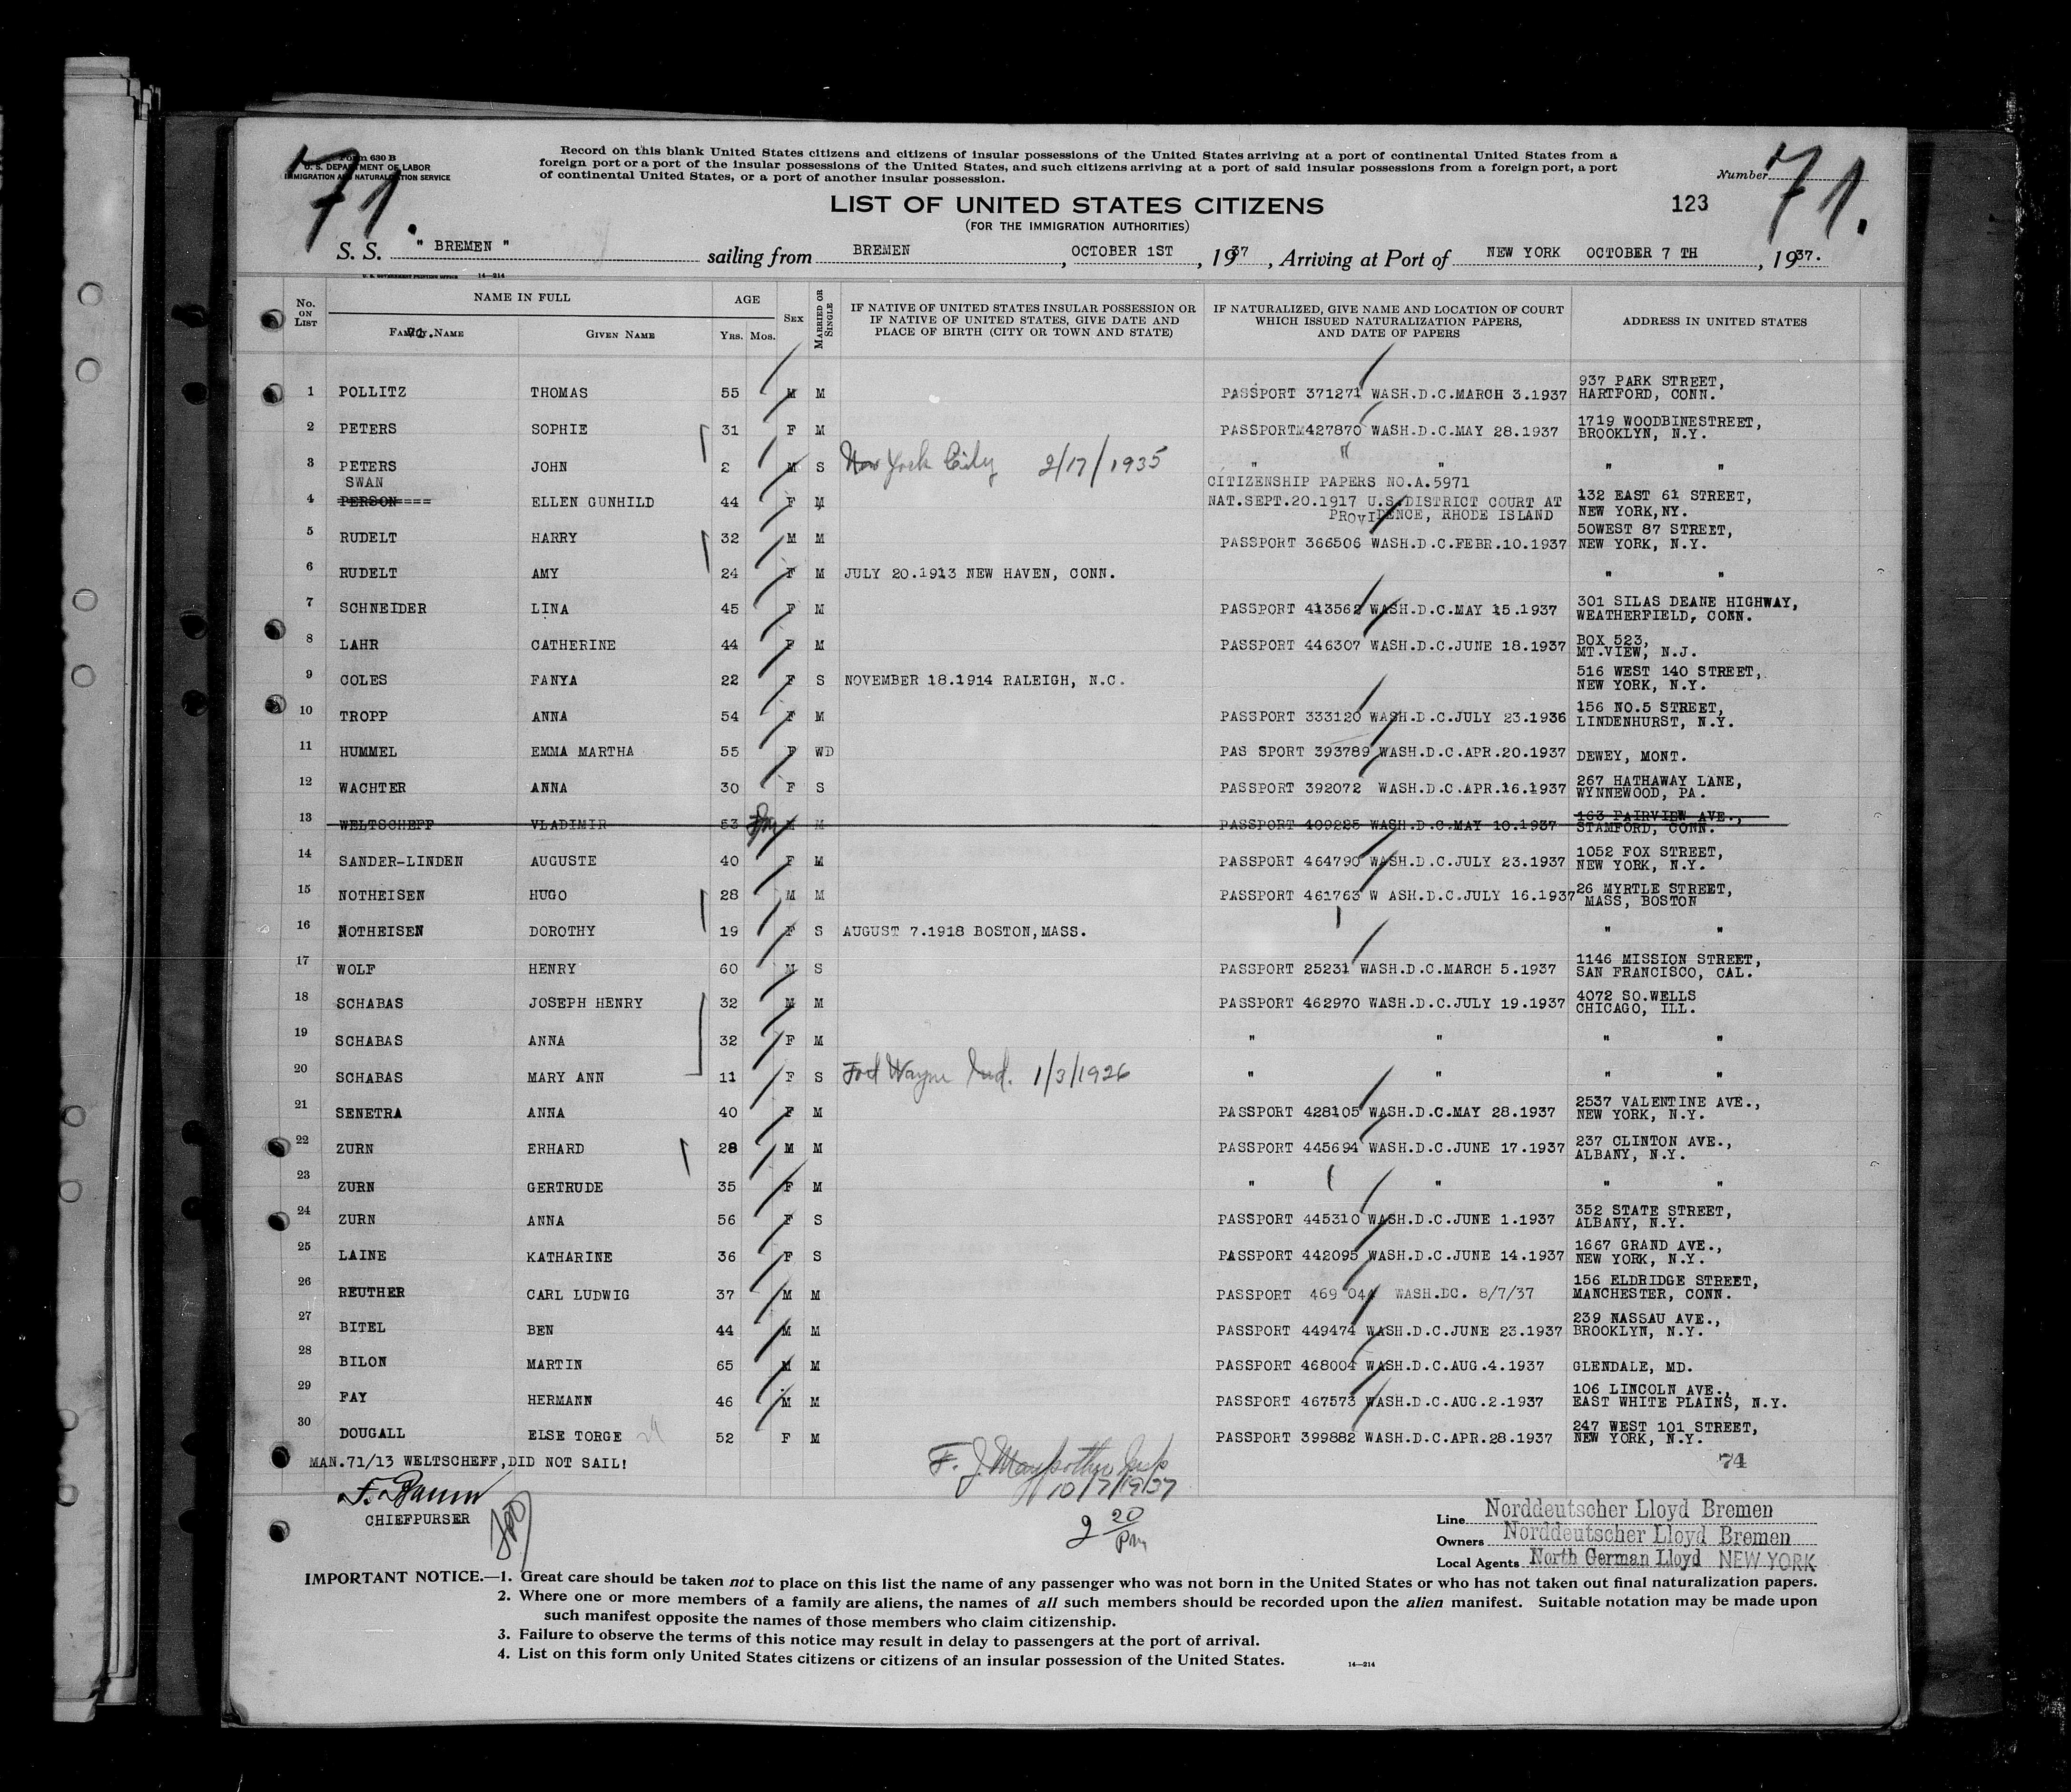 71.
Form 630 B
U. S. DEPARTMENT OF LABOR
IMMIGRATION AND NATURALIZATION SERVICE
Record on this blank United States citizens and citizens of insular possessions of the United States arriving at a port of continental United States from a
foreign port or a port of the insular possessions of the United States, and such citizens arriving at a port of said insular possessions from a foreign port, a port
of continental United States, or a port of another insular possession.
Number 71.
LIST OF UNITED STATES CITIZENS
123
(FOR THE IMMIGRATION AUTHORITIES)
S. S. " BREMEN " sailing from BREMEN , OCTOBER 1ST , 1937 , Arriving at Port of NEW YORK OCTOBER 7 TH , 1937.
U. S. GOVERNMENT PRINTING OFFICE 14—214
No. ON LIST
NAME IN FULL
FAMILY NAME
71.
GIVEN NAME
AGE
YRS. MOS.
SEX
MARRIED OR SINGLE
IF NATIVE OF UNITED STATES INSULAR POSSESSION OR
IF NATIVE OF UNITED STATES, GIVE DATE AND
PLACE OF BIRTH (CITY OR TOWN AND STATE)
IF NATURALIZED, GIVE NAME AND LOCATION OF COURT
WHICH ISSUED NATURALIZATION PAPERS,
AND DATE OF PAPERS
ADDRESS IN UNITED STATES
1 POLLITZ THOMAS 55 M M PASSPORT 371271 WASH.D.C.MARCH 3.1937 937 PARK STREET,
HARTFORD, CONN.
2 PETERS SOPHIE 31 F M PASSPORT 427870 WASH.D.C.MAY 28.1937 1719 WOODBINESTREET,
BROOKLYN, N.Y.
3 PETERS JOHN 2 M S New York City 2/17/1935 " " " "
SWAN
CITIZENSHIP PAPERS NO.A.5971
4 PERSON==== ELLEN GUNHILD 44 F M NAT.SEPT.20.1917 U.S.DISTRICT COURT AT 132 EAST 61 STREET,
PROVIDENCE, RHODE ISLAND NEW YORK,NY.
5 RUDELT HARRY 32 M M PASSPORT 366506 WASH.D.C.FEBR.10.1937 50WEST 87 STREET,
NEW YORK, N.Y.
6 RUDELT AMY 24 F M JULY 20.1913 NEW HAVEN, CONN. " "
7 SCHNEIDER LINA 45 F M PASSPORT 413562 WASH.D.C.MAY 15.1937 301 SILAS DEANE HIGHWAY,
WEATHERFIELD, CONN.
8 LAHR CATHERINE 44 F M PASSPORT 446307 WASH.D.C.JUNE 18.1937 BOX 523,
MT.VIEW, N.J.
9 COLES FANYA 22 F S NOVEMBER 18.1914 RALEIGH, N.C. 516 WEST 140 STREET,
NEW YORK, N.Y.
10 TROPP ANNA 54 F M PASSPORT 333120 WASH.D.C.JULY 23.1936 156 NO.5 STREET,
LINDENHURST, N.Y.
11 HUMMEL EMMA MARTHA 55 F WD PAS SPORT 393789 WASH.D.C.APR.20.1937 DEWEY, MONT.
12 WACHTER ANNA 30 F S PASSPORT 392072 WASH.D.C.APR.16.1937 267 HATHAWAY LANE,
WYNNEWOOD, PA.
13 WELTSCHEFF VLADIMIR 53 M M PASSPORT 409225 WASH.D.C.MAY 10.1937 163 FAIRVIEW AVE.,
STAMFORD, CONN.
14 SANDER-LINDEN AUGUSTE 40 F M PASSPORT 464790 WASH.D.C.JULY 23.1937 1052 FOX STREET,
NEW YORK, N.Y.
15 NOTHEISEN HUGO 28 M M PASSPORT 461763 W ASH.D.C.JULY 16.1937 26 MYRTLE STREET,
MASS, BOSTON
16 NOTHEISEN DOROTHY 19 F S AUGUST 7.1918 BOSTON,MASS. " "
17 WOLF HENRY 60 M S PASSPORT 25231 WASH.D.C.MARCH 5.1937 1146 MISSION STREET,
SAN FRANCISCO, CAL.
18 SCHABAS JOSEPH HENRY 32 M M PASSPORT 462970 WASH.D.C.JULY 19.1937 4072 SO.WELLS
CHICAGO, ILL.
19 SCHABAS ANNA 32 F M " " " "
20 SCHABAS MARY ANN 11 F S Fort Wayne Ind. 1/3/1926 " " " "
21 SENETRA ANNA 40 F M PASSPORT 428105 WASH.D.C.MAY 28.1937 2537 VALENTINE AVE.,
NEW YORK, N.Y.
22 ZURN ERHARD 28 M M PASSPORT 445694 WASH.D.C.JUNE 17.1937 237 CLINTON AVE.,
ALBANY, N.Y.
23 ZURN GERTRUDE 35 F M " " " "
24 ZURN ANNA 56 F S PASSPORT 445310 WASH.D.C.JUNE 1.1937 352 STATE STREET,
ALBANY, N.Y.
25 LAINE KATHARINE 36 F S PASSPORT 442095 WASH.D.C.JUNE 14.1937 1667 GRAND AVE.,
NEW YORK, N.Y.
26 REUTHER CARL LUDWIG 37 M M PASSPORT 469 044 WASH.DC. 8/7/37 156 ELDRIDGE STREET,
MANCHESTER, CONN.
27 BITEL BEN 44 M M PASSPORT 449474 WASH.D.C.JUNE 23.1937 239 NASSAU AVE.,
BROOKLYN, N.Y.
28 BILON MARTIN 65 M M PASSPORT 468004 WASH.D.C.AUG.4.1937 GLENDALE, MD.
29 FAY HERMANN 46 M M PASSPORT 467573 WASH.D.C.AUG.2.1937 106 LINCOLN AVE.,
EAST WHITE PLAINS, N.Y.
30 DOUGALL ELSE TORGE 52 F M PASSPORT 399882 WASH.D.C.APR.28.1937 247 WEST 101 STREET,
NEW YORK, N.Y.
MAN.71/13 WELTSCHEFF,DID NOT SAIL!
74
F. Baum
CHIEFPURSER
F. J.
10/7/1937
9 20 Pm
Line Norddeutscher Lloyd Bremen
Owners Norddeutscher Lloyd Bremen
Local Agents North German Lloyd NEW YORK
IMPORTANT NOTICE.—1. Great care should be taken not to place on this list the name of any passenger who was not born in the United States or who has not taken out final naturalization papers.
2. Where one or more members of a family are aliens, the names of all such members should be recorded upon the alien manifest. Suitable notation may be made upon
such manifest opposite the names of those members who claim citizenship.
3. Failure to observe the terms of this notice may result in delay to passengers at the port of arrival.
4. List on this form only United States citizens or citizens of an insular possession of the United States.
14—214